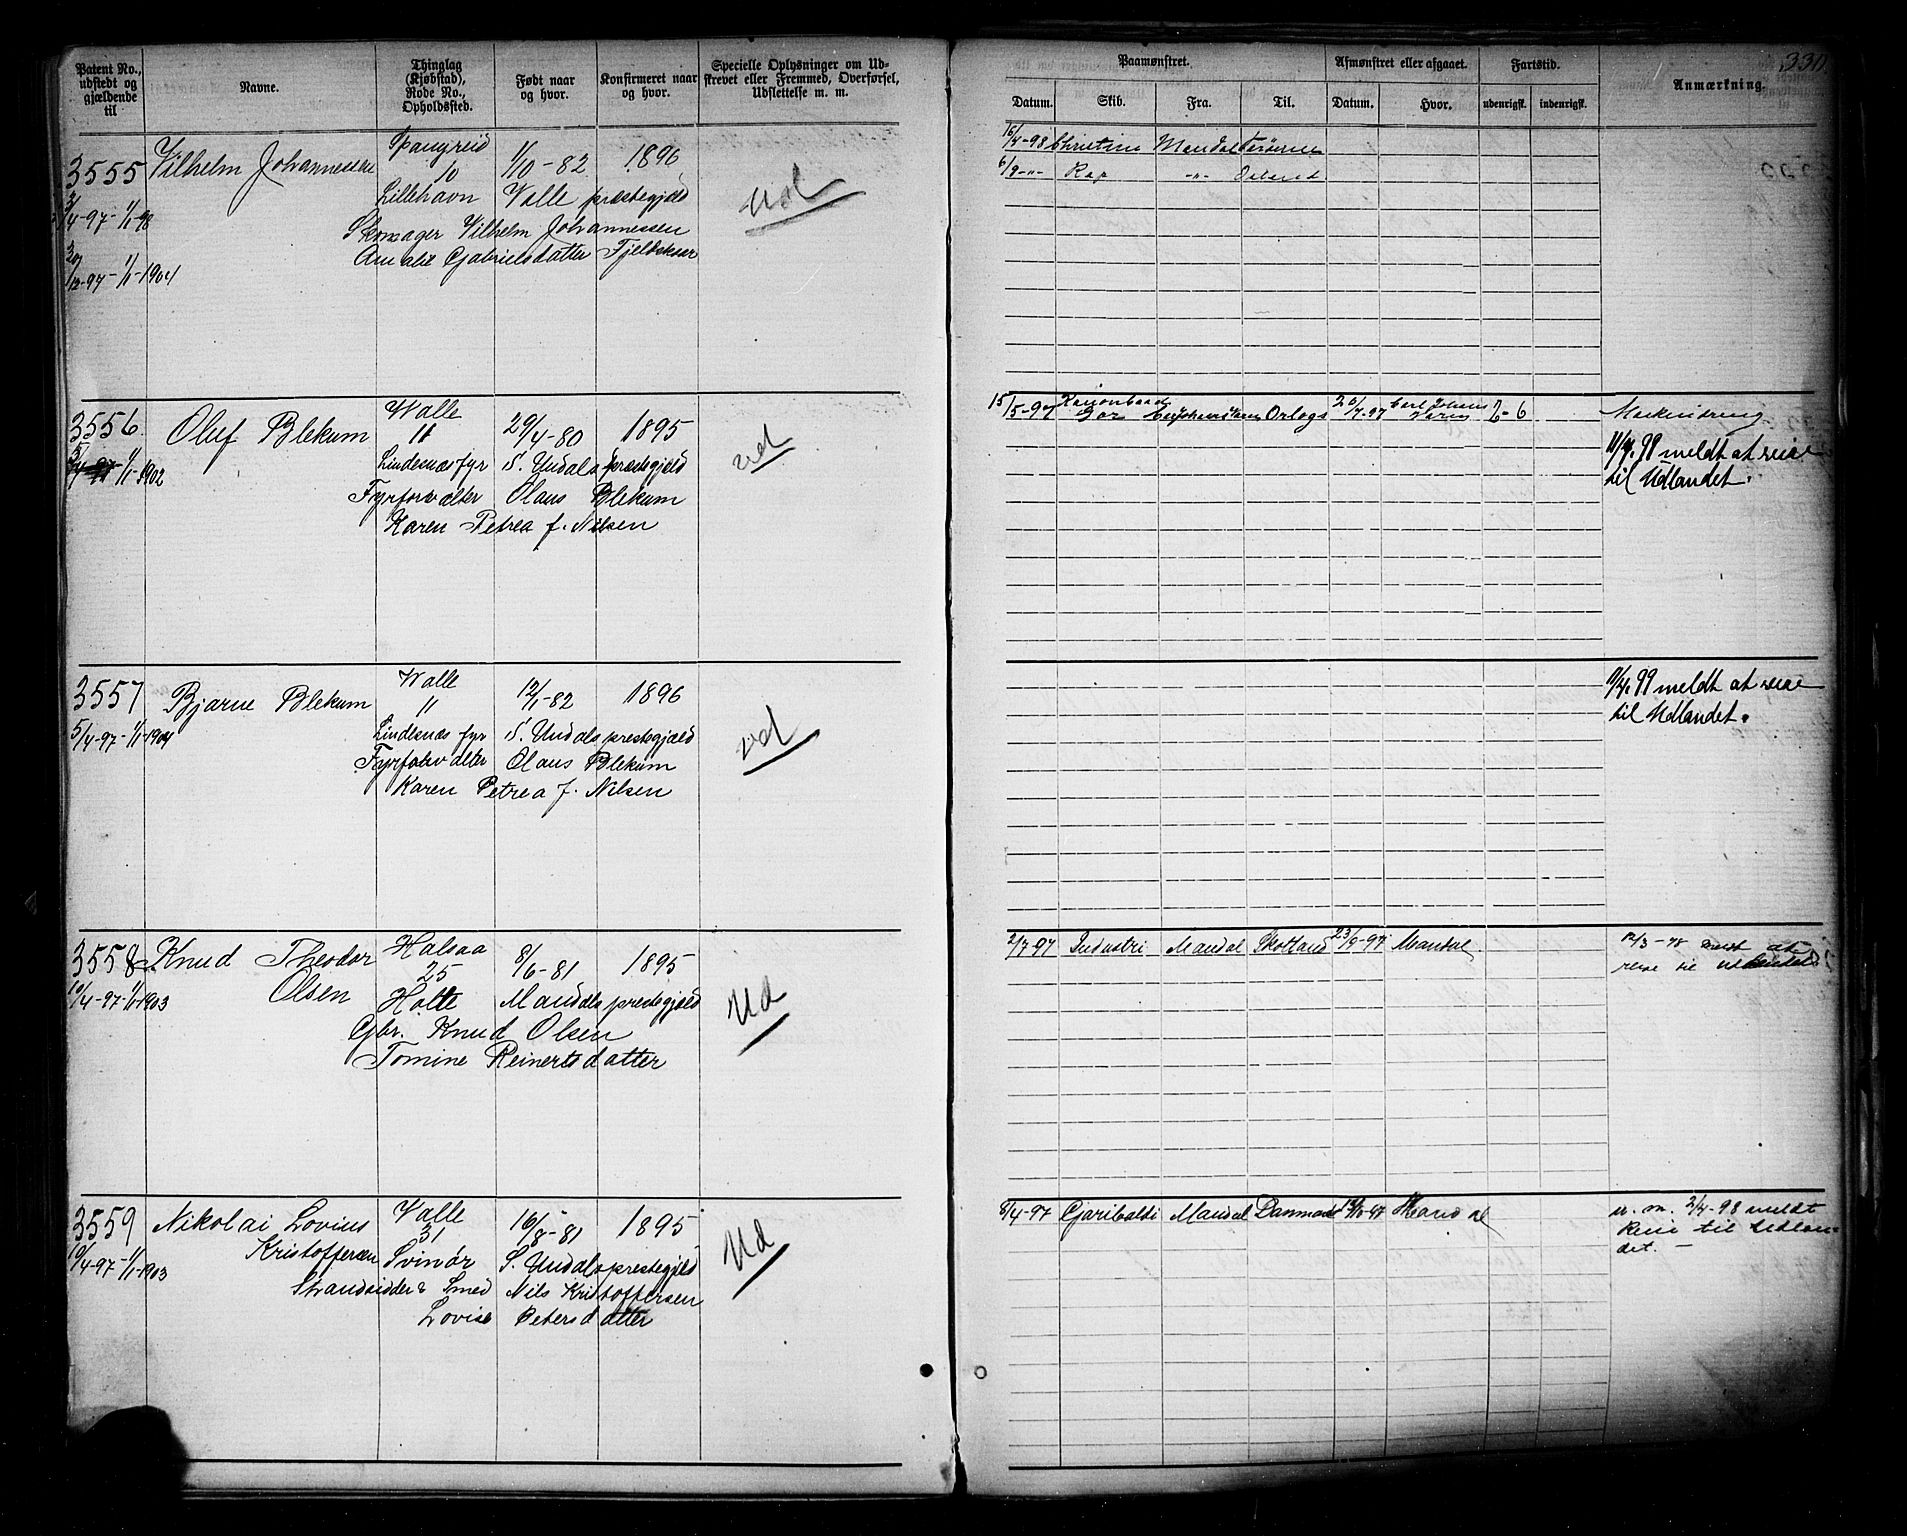 330
Patent No., udstedt og gjældende til
Navne.
Thinglag (Kjøbstad), Rode No., Opholdssted.
Født naar og hvor.
Konfirmeret naar og hvor.
Specielle Oplysninger om Udskrevet eller Fremmed, Overførsel, Udslettelse m. m.
Paamønstret.
Afmønstret eller afgaaet.
Fartstid.
Anmærkning.
Datum. Skib. Fra. Til. Datum. Hvor. udenrigsk. indenrigsk.
3555 Vilhelm Johannessen Spangreid 1/10-82 1896
10
Lillehavn Valle præstegjeld
Ud
3/4-97-1/1-98
Skomager Vilhelm Johannessen
Amalie Gabrielsdatter Fjeldskaar
20/12-97-1/1-1904
16/4-98 Christine Mandal
6/9 -"- Rap -"-
3556 Oluf Blekum Walle 29/4-80 1895
11
1/1-1902
Lindesnæs fyr S. Undals præstegjeld
ud
Fyrforvalter Olaus Blekum
Karen Petrea f. Nilsen
15/5-97 Kanonbaad
Gor Orlogs 20/7-97 Carl Johans
Værn 6
11/4.98 meldt at reise
til Udlandet.
3557 Bjarne Blekum Walle 12/1-82 1896
11
5/4-97-1/1-1904
Lindesnæs fyr S. Undals prestegjæld
ud
Fyrforvalter Olaus Blekum
Karen Petrea f. Nilsen
11/4.99 meldt at reise
til Udlandet.
3558 Knud Theodor Olsen Halsaa 8/6-81 1895
25
10/4-97-1/1-1903
Holte Mandals prestegjæld
Ud
Gbr. Knud Olsen
Tomine Reinertsdatter
2/7-97 Industri Mandal Skotland 23/9-97 Mandal
12/3-98 meldt at
reise til udlandet
3559 Nikolai Lovius Kristoffersen Valle 16/8-81 1895
31
10/4-97-1/1-1903
Svinør S. Undals prestegjeld
Ud
Strandsidder & Smed Nils Kristoffersen
Lovise Petersdatter
8/4-97 Garibaldi Mandal Danmark Mandal
u. m. 2/4-98 meldt
Reise til Udlan-
det. —